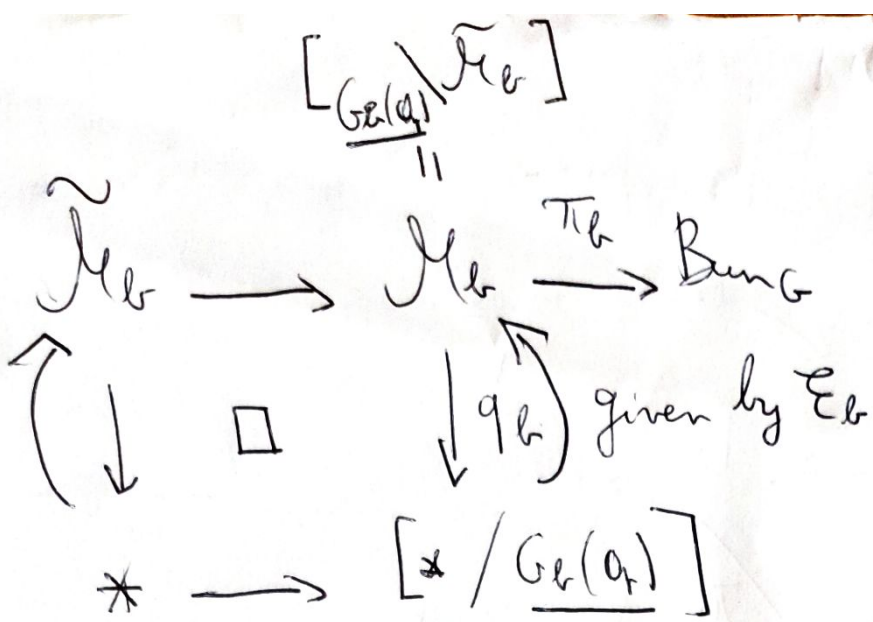 [G_b(Q_p) \ M̃_b]
=
M̃_b → M_b π_b → Bun_G
□ q_b given by ℰ_b
* → [* / G_b(Q_p)]